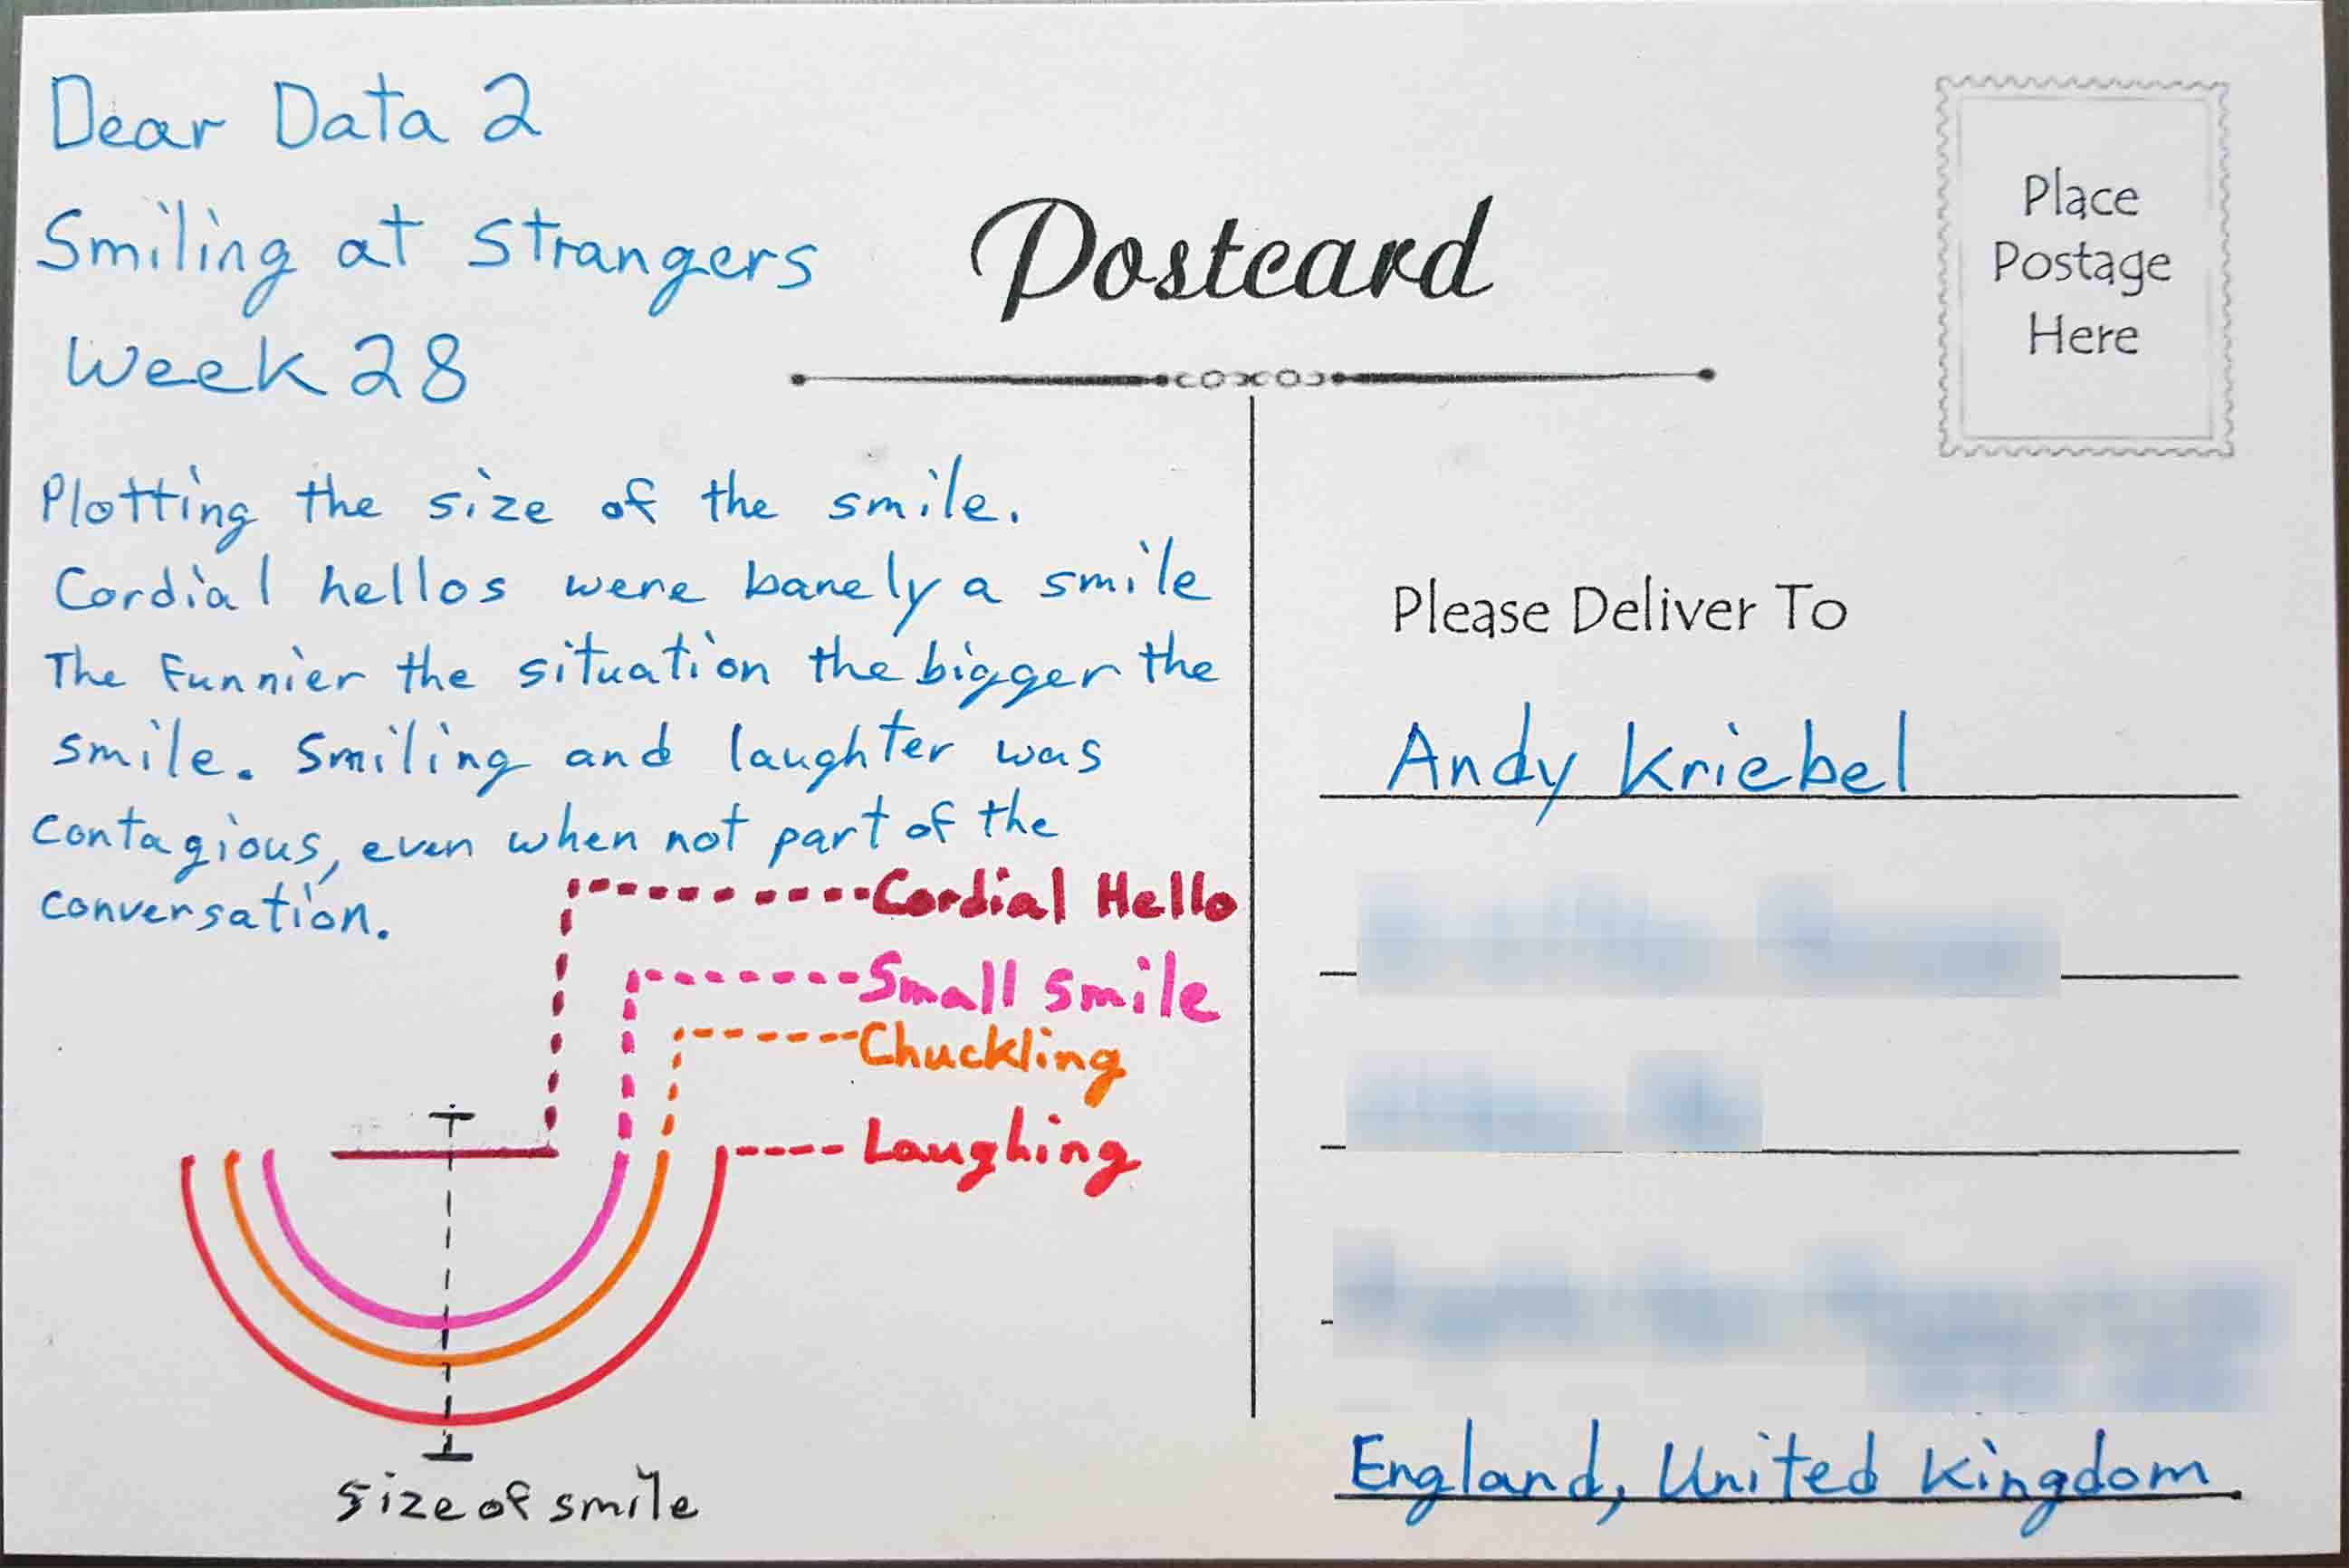 Dear Data 2
Smiling at Strangers
Week 28
Postcard
Place
Postage
Here
Plotting the size of the smile.
Cordial hellos were barely a smile
The funnier the situation the bigger the
smile. Smiling and laughter was
contagious, even when not part of the
conversation.
Cordial Hello
Small Smile
Chuckling
Laughing
size of smile
Please Deliver To
Andy Kriebel
England, United Kingdom